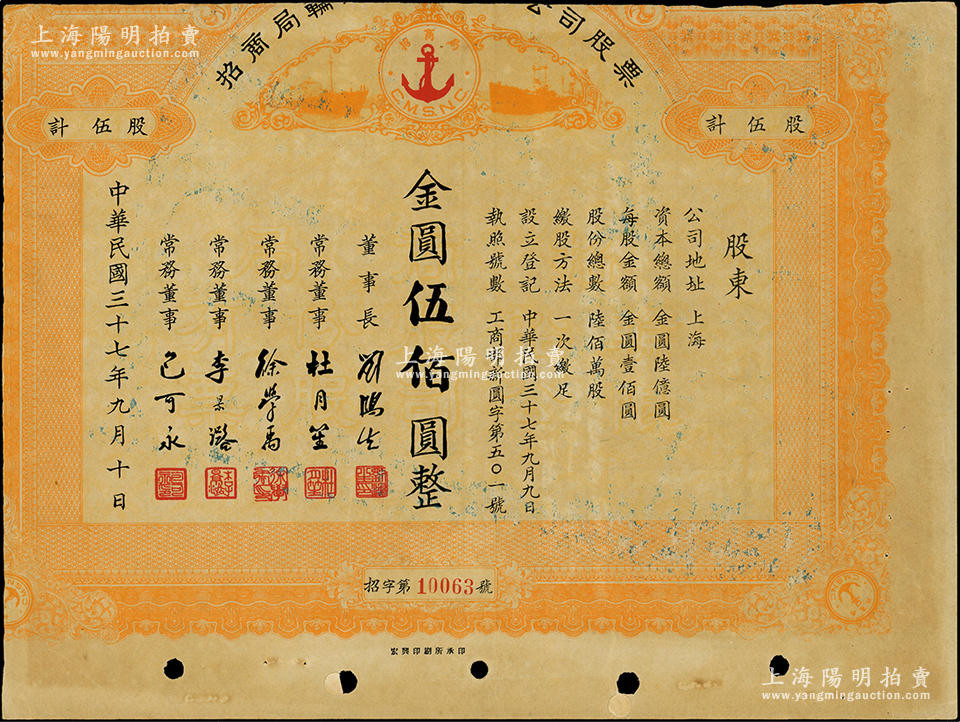 上海陽明拍賣
www.yangmingauction.com
招商局輪
公司股票
招商局
C.M.S.N.C.
計伍股
計伍股
股東
公司地址 上海
資本總額 金圓陸億圓
每股金額 金圓壹佰圓
股份總數 陸佰萬股
繳股方法 一次繳足
設立登記 中華民國三十七年九月九日
執照號數 工商部新圓字第五〇一號
金圓伍佰圓整
董事長 劉鴻生
常務董事 杜月笙
常務董事 徐學禹
常務董事 李景潞
常務董事 包可永
中華民國三十七年九月十日
上海陽明拍賣
www.yangmingauction.com
招字第10063號
宏興印刷所承印
上海陽明拍賣
www.yangmingauction.com